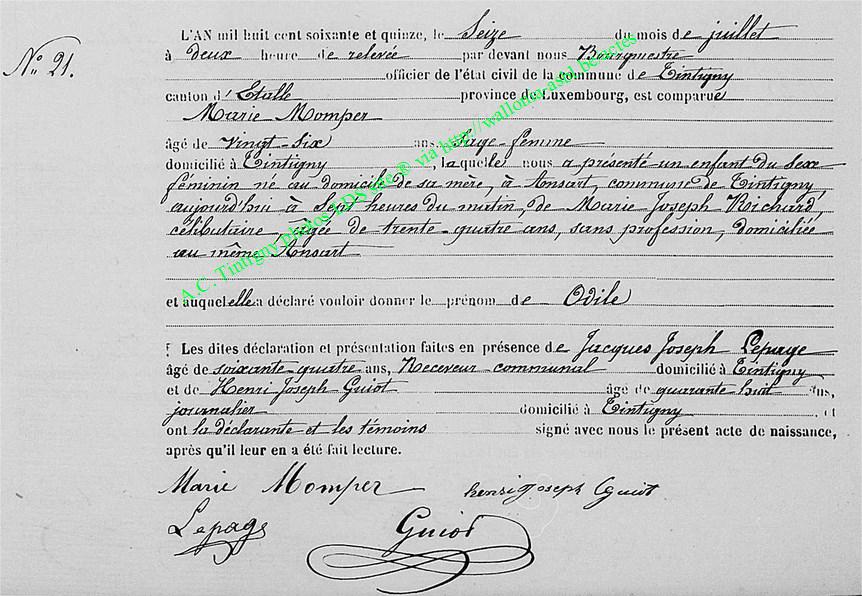 L'AN mil huit cent soixante et quinze, le Seize du mois de juillet
No 21.
à deux heure de relevée par devant nous Bourgmestre
officier de l'état civil de la commune de Tintigny
canton d'Etalle province de Luxembourg, est comparue
Marie Momper
âgé de vingt-six ans, Sage-femme
domicilié à Tintigny, laquelle nous a présenté un enfant du sexe
féminin né au domicile de sa mère, à Ansart, commune de Tintigny,
aujourd'hui à Sept heures du matin, de Marie Joseph Richard,
célibataire, âgée de trente-quatre ans, sans profession, domiciliée
au même Ansart
et auquel elle a déclaré vouloir donner le prénom de Odile
Les dites déclaration et présentation faites en présence de Jacques Joseph Lepage
âgé de soixante-quatre ans, Receveur communal domicilié à Tintigny
et de Henri Joseph Guiot âgé de quarante huit ans,
journalier domicilié à Tintigny et
ont la déclarante et les témoins signé avec nous le présent acte de naissance,
après qu'il leur en a été fait lecture.
Marie Momper henri Joseph Guiot
Lepage Guiot
A.C. Tintigny photos LDS site ® via http://wallonia-asgl.be/actes